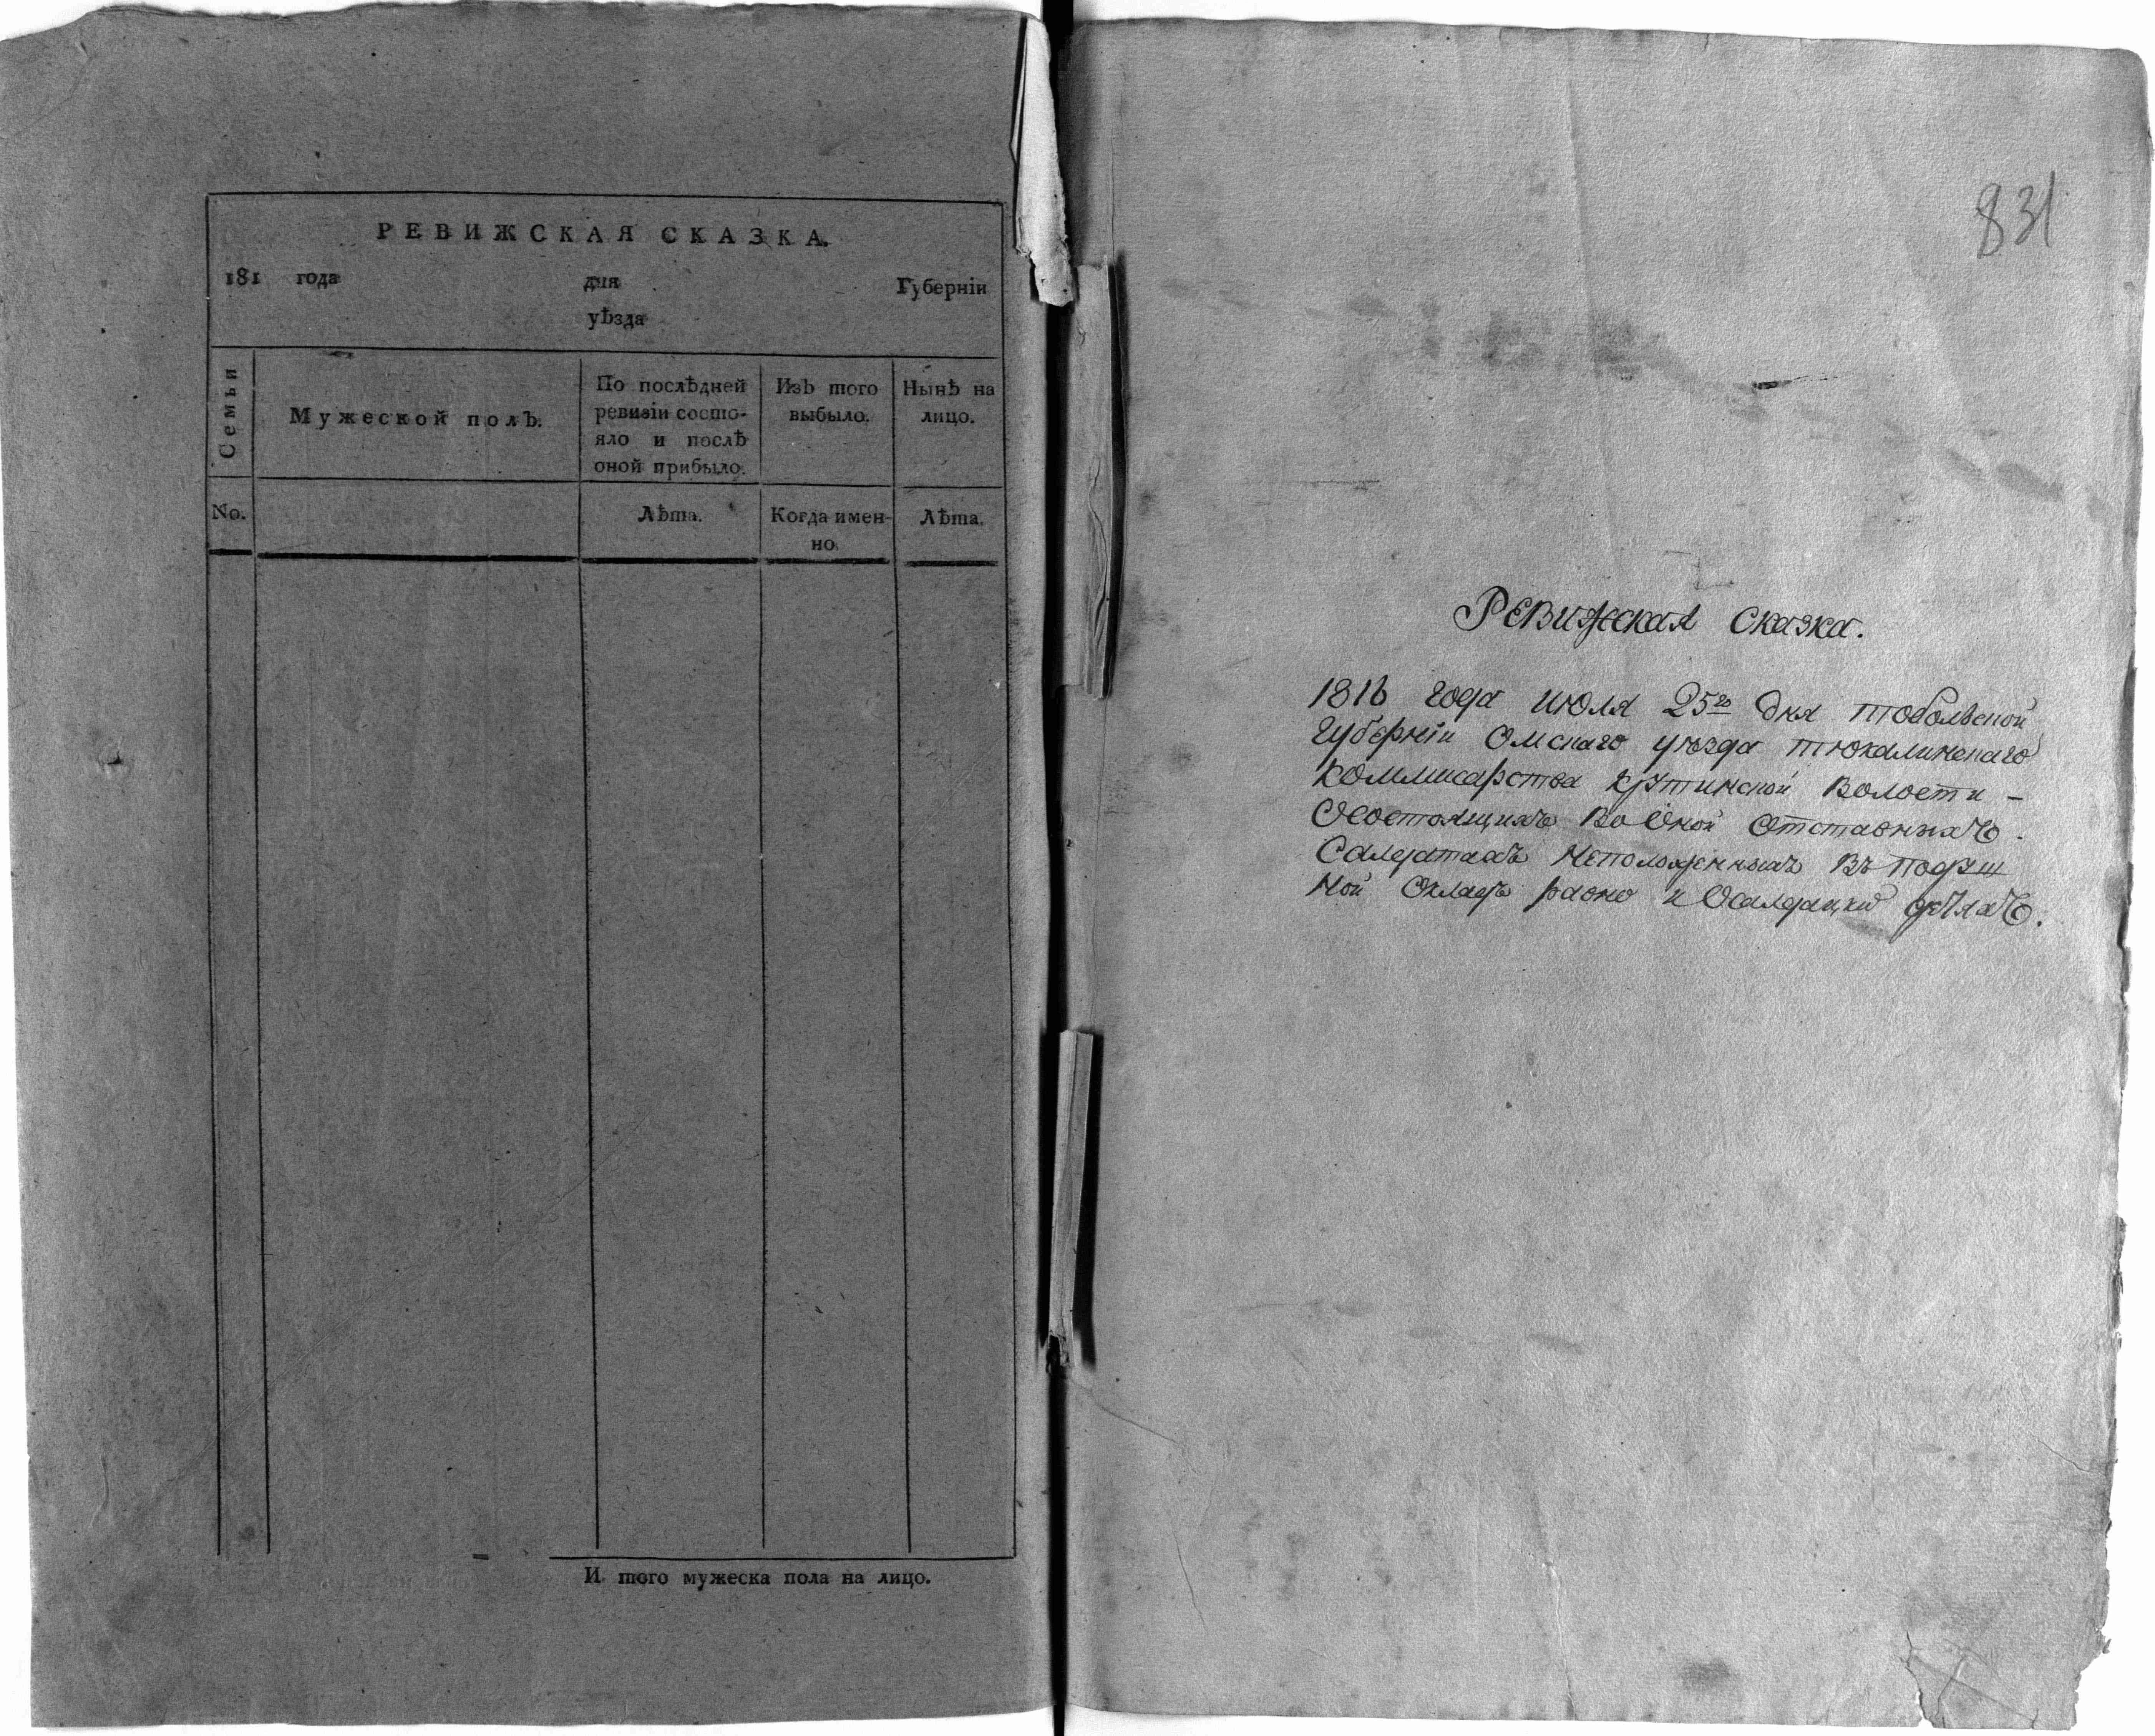 РЕВИЖСКАЯ СКАЗКА.
181 года дня Губернїи
уѣзда
Семьи
Мужеской полъ.
По послѣдней
ревизїи состо-
яло и послѣ
оной прибыло.
Изъ того
выбыло.
Нынѣ на
лицо.
No.
Лѣта.
Когда имен-
но.
Лѣта.
И того мужеска пола на лицо.
831
Ревижская сказка.
1816 года июля 25го дня тобольской
губернїи Омскаго уѣзда тюкалинскаго
коммисарства крутинской волости –
Осостоящихъ во Оной отставныхъ
Салдатахъ неположенныхъ въ подуш
ной Окладъ равно и Осалдацки дѣтяхъ.